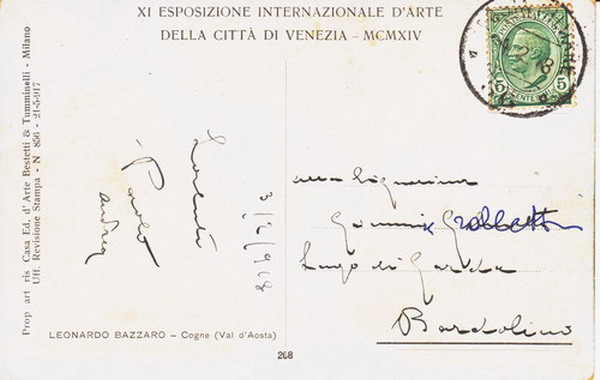 XI ESPOSIZIONE INTERNAZIONALE D'ARTE
DELLA CITTÀ DI VENEZIA – MCMXIV
Prop art ris Casa Ed. d'Arte Bestetti & Tumminelli - Milano
Uff. Revisione Stampa - N 856 - 21-5-917
POSTE ITALIANE
5 CENTESIMI 5
Saluti
Paolo
3/2/918
Lago di Garda
Bardolino
LEONARDO BAZZARO – Cogne (Val d'Aosta)
268